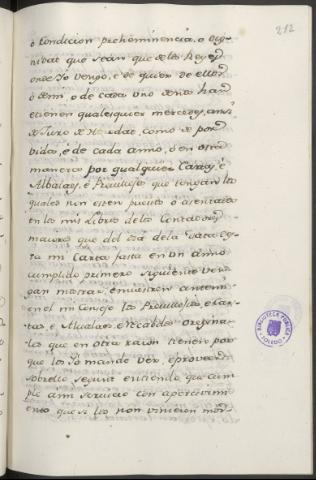 212
o Condicion preheminencia, o Dig-
nidat que sean que delos Reyes
onde Yo vengo, e de quien de ellos
o de mi, o de cada uno de nos han
e tienen qualesquier mercedes, ansi
de Juro de Heredat, como de por
vida, e de cada anno, o en otra
manera por qualquier Cartas, e
Albalaes, e Privillejos que tengan los
quales non esten puestos o asentados
en los mis Libros delos Contadores
maiores que del dia dela Data de es-
ta mi Carta fasta en un anno
cumplido primero siguiente ven-
gan mostrar, e muestren ante mi
en el mi Consejo los Privillejos, e Car-
tas, e Alvalaes, e recaldos orepina-
les que en esta racon tienen por
que los Yo mande ver, e provea
sobrello segunt entiendo que cum-
ple a mi servicio con apercivimi-
ento que si los non vinieren mos-
BIBLIOTECA PUBLICA
TOLEDO